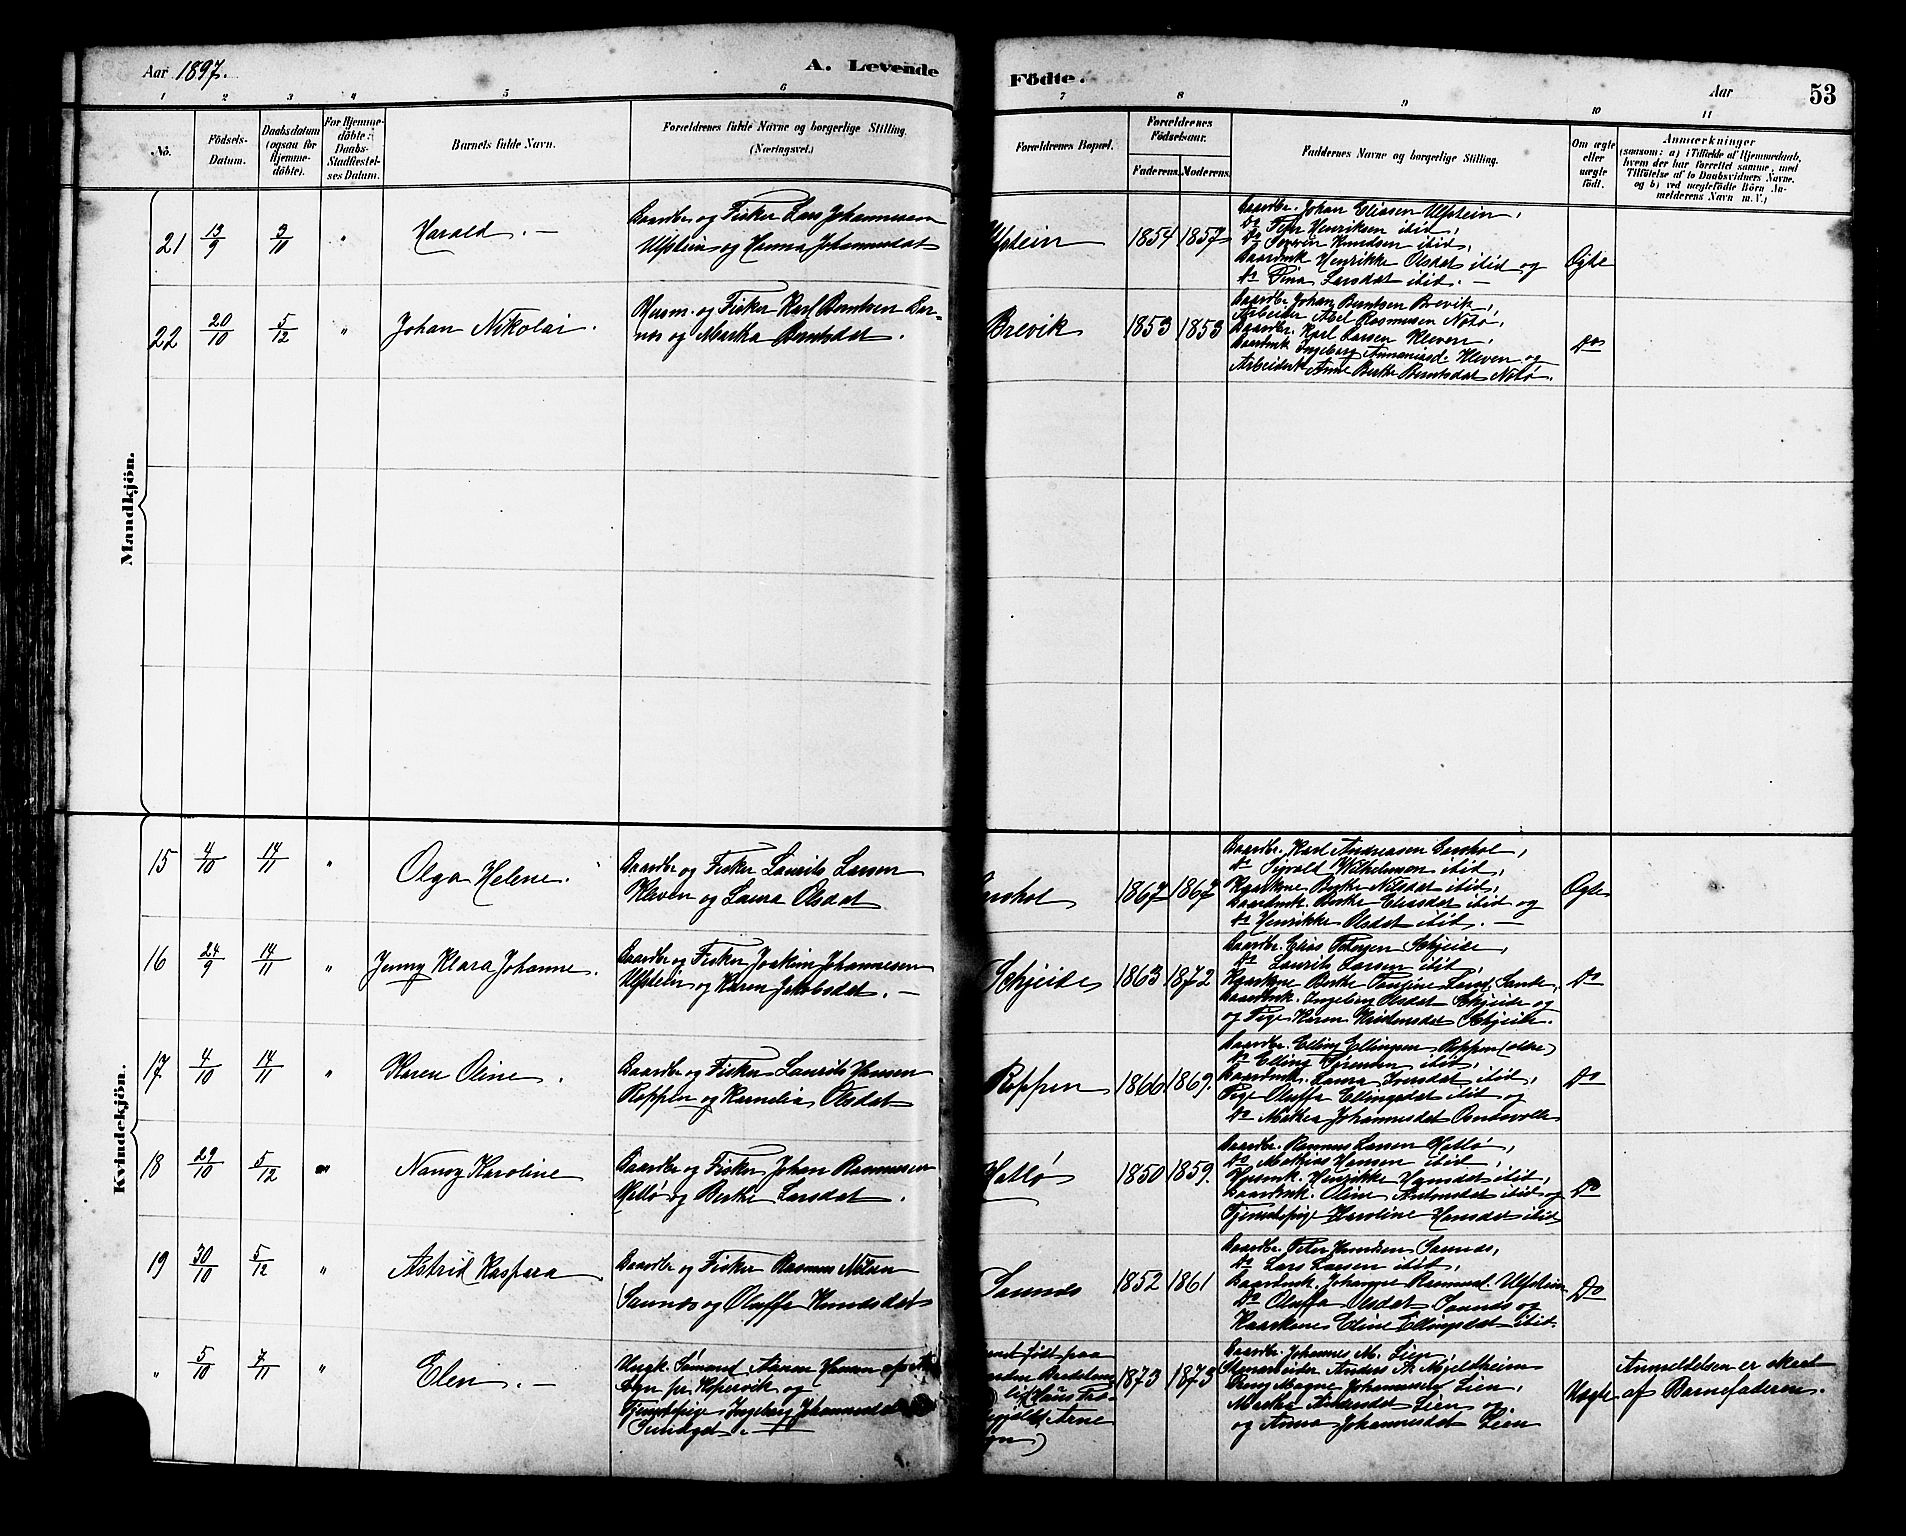 Aar 1897.
A. Levende
Födte.
Aar
53
1 2 3 4 5 6 7 8 9 10 11
No.
Födsels-
Datum.
Daabsdatum
(ogsaa for
Hjemme-
döbte).
For Hjemme-
döbte:
Daabs-
Stadfæstel-
ses Datum.
Barnets fulde Navn.
Forældrenes fulde Navne og borgerlige Stilling.
(Næringsvei.)
Forældrenes Bopæl.
Forældrenes
Födselsaar.
Faderens. Moderens.
Faddernes Navne og borgerlige Stilling.
Om ægte
eller
uægte
född.
Anmærkninger
(saasom: a) i Tilfælde af Hjemmedaab,
hvem der har forrettet samme, med
Tilföielse af to Daabsvidners Navne,
og b) ved uægtefödte Börn An-
melderens Navn m.V.)
Mandkjön.
21 13/9 3/11 " Harald. —
Gaardbr og Fisker Lars Johannesen
Ulfstein og Hanna Johannesdat
Ulfstein 1854 1857
Gaardbr. Johan Eliasen Ulfstein,
Do Peter Henriksen itid,
Do Severin Knudsen itid,
Gaardmk Henrikke Olsdat itid og
Do Pina Larsdat itid. —
Egte
22 20/10 5/12 " Johan Nikolai.
Husm. og Fisker Karl Berntsen
og Martha Berntsdat.
Brevik 1853 1853
Gaardbr. Johan Berntsen Brevik,
Arbeider Abel Rasmusen Notø,
Gaardbr. Karl Larsen Kleven,
Gaardmk Ingeborg Kleven og
Arbeidersk Anne Berthe Berntsdat Notø.
Do
Kvindekjön.
15 4/10 14/11 " Olga Helene.
Gaardbr og Fisker Laurits Larsen
Kleven og Laura Olsdat
1867 1867
Gaardbr. Karl Andreasen
Do Sivald Wilhelmsen itid,
Kaarkone Berthe Nilsdat itid,
Gaardmk. Berthe Eliasdat itid og
Do Henrikke Olsdat itid. —
Egte
16 24/9 14/11 " Jenny Klara Johanne.
Gaardbr og Fisker Joakim Johannesen
Ulfstein og Karen Jakobsdat. —
Skjeide 1863 1872
Gaardbr. Elias Petersen Skjeide,
Do Laurits Larsen itid,
Kaarkone Berthe Pauline Sande,
Gaardmk. Ingeborg Olsdat Skjeide og
og Pige Karen Skjeide.
Do
17 4/10 14/11 " Karen Oline.
Gaardbr og Fisker Laurits Hansen
Roppen og Kornelia Olsdat
Roppen 1866 1869.
Gaardbr. Elling Ellingsen Roppen (eldre)
Do Elling itid,
Gaardmk. Laura Iversdat itid,
Pige Oluffa Ellingsdat itid og
Do Mathea Johannesdat
Do
18 29/10 5/12 " Nancy Karoline
Gaardbr og Fisker Johan Rasmusen
Hatlø og Berthe Larsdat.
Hatlø 1850 1859.
Gaardbr. Rasmus Larsen Hatlø,
Do Mathias Hansen itid,
Henrikke Hansdat itid,
Gaardmk. Oline Antonsdat itid og
Tjenestepige Karoline Hansdat itid
Do
19 30/10 5/12 " Astrid Kaspara
Gaardbr og Fisker Rasmus Nilsen
Saunes og Oluffa Knudsdat
Saunes 1852 1861
Gaardbr. Peter Knudsen Saunes,
Do Lars Larsen itid,
Gaardmk. Johanne Rasmusd. Ulfstein
Do Oluffa Olsdat Saunes og
Kaarkone Eline Ellingsdat itid.
Do
" 5/10 7/11 " Elen. —
Ungk. Sömand Hansen af
Sogn pr. Kopervik og
Tjenestepige Ingeborg Johannesdat
født paa
Haus
Arne
1873 1873
Gaardbr. Johannes M. Lien,
Stenarbeider Anders Mjeldheim
Magne Johannesen Lien,
Martha Lien og
og Anna Johannesdat Lien
Uægte
Anmeldelsen er skeet
af Barnefaderen.